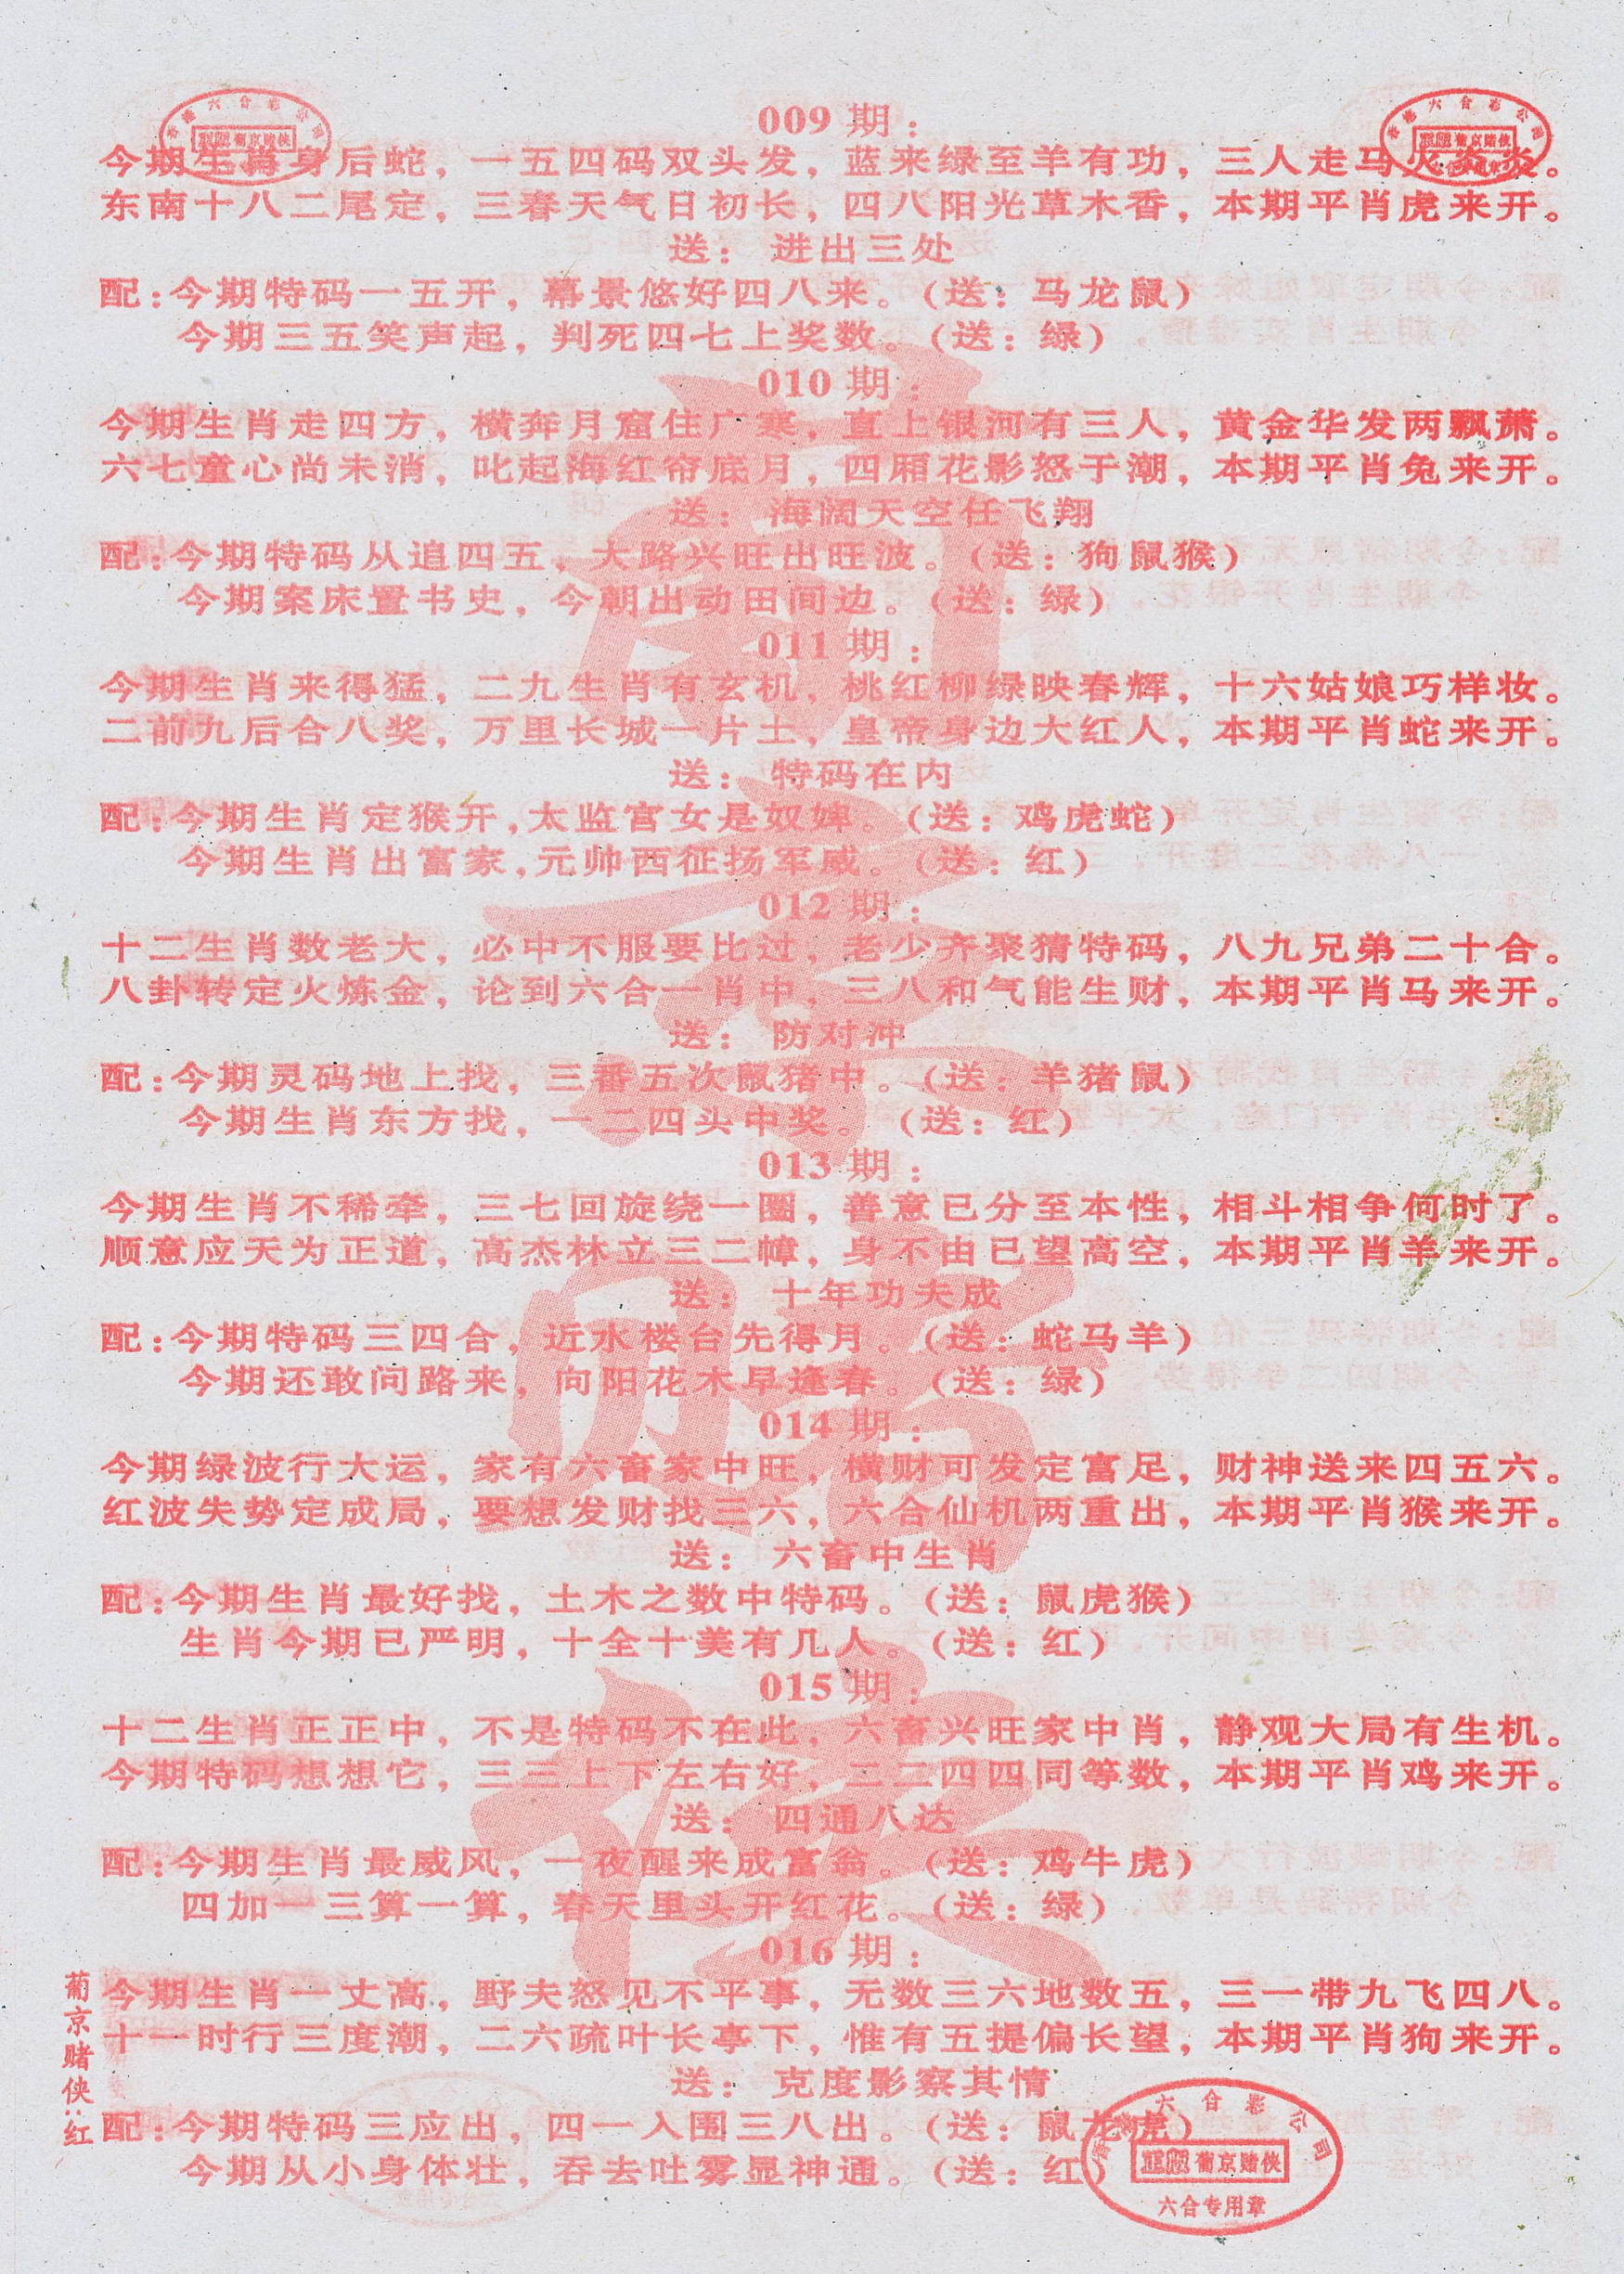 009 期：
今期生肖身后蛇，一五四码双头发，蓝来绿至羊有功，三人走马火炎炎。
东南十八二尾定，三春天气日初长，四八阳光草木香，本期平肖虎来开。
送：进出三处
配：今期特码一五开，幕景悠好四八来。（送：马龙鼠）
今期三五笑声起，判死四七上奖数。（送：绿）
010 期：
今期生肖走四方，横奔月窟住广寒，直上银河有三人，黄金华发两飘萧。
六七童心尚未消，叱起海红帘底月，四厢花影怒于潮，本期平肖兔来开。
送：海阔天空任飞翔
配：今期特码从追四五，大路兴旺出旺波。（送：狗鼠猴）
今期案床置书史，今朝出动田间边。（送：绿）
011 期：
今期生肖来得猛，二九生肖有玄机 桃红柳绿映春辉，十六姑娘巧样妆。
二前九后合八奖，万里长城一片士，皇帝身边大红人，本期平肖蛇来开。
送：特码在内
配：今期生肖定猴开，太监宫女是奴婢。（送：鸡虎蛇）
今期生肖出富家，元帅西征扬军威。（送：红）
012 期：
十二生肖数老大，必中不服要比过，老少齐聚猜特码，八九兄弟二十合。
八卦转定火炼金，论到六合一肖中，三八和气能生财，本期平肖马来开。
送：防对冲
配：今期灵码地上找，三番五次鼠猪中。（送：羊猪鼠）
今期生肖东方找，一二四头中奖。（送：红）
013 期：
今期生肖不稀牵，三七回旋绕一圈，善意已分至本性，相斗相争何时了。
顺意应天为正道，高杰林立三二幛，身不由已望高空，本期平肖羊来开。
送：十年功夫成
配：今期特码三四合，近水楼台先得月。（送：蛇马羊）
今期还敢问路来，向阳花木早逢春。（送：绿）
014 期：
今期绿波行大运，家有六畜家中旺，横财可发定富足，财神送来四五六。
红波失势定成局，要想发财找三六，六合仙机两重出，本期平肖猴来开。
送：六畜中生肖
配：今期生肖最好找，土木之数中特码。（送：鼠虎猴）
生肖今期已严明，十全十美有几人。（送：红）
015 期：
十二生肖正正中，不是特码不在此，六畜兴旺家中肖，静观大局有生机。
今期特码想想它，三三上下左右好，二二四四同等数，本期平肖鸡来开。
送：四通八达
配：今期生肖最威风，一夜醒来成富翁。（送：鸡牛虎）
四加一三算一算，春天里头开红花。（送：绿）
016 期：
今期生肖一丈高，野夫怒见不平事，无数三六地数五，三一带九飞四八。
十一时行三度潮，二六疏叶长亭下，惟有五提偏长望，本期平肖狗来开。
送：克度影察其情
配：今期特码三应出，四一入围三八出。（送：鼠龙虎）
今期从小身体壮，吞去吐雾显神通。（送：红）
葡京赌侠：红
葡京赌侠
香港六合彩公司
葡京赌侠
六合专用章